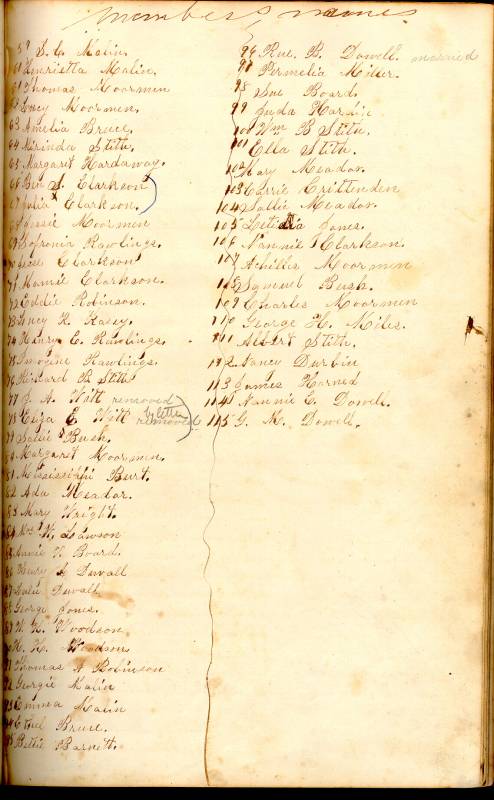 members names
59 S. C. Malin.
60 Henrietta Malin.
61 Thomas Moormen
62 Lucy Moormen.
63 Amelia Bruce.
64 Mirinda Stith.
65 Margaret Hardaway.
66 Ben S. Clarkson
67 Julia Clarkson.
68 Jessie Moormen
69 Sofronia Rawlings.
70 Jesse Clarkson
71 Mamie Clarkson.
72 Eddie Robinson.
73 Lucy K. Kasey.
74 Henry C. Rawlings.
75 Imogine Rawlings.
76 Richard B. Stith
77 J. A. Witt removed
78 Eliza E. Witt removed by letter
79 Sallie Bush.
80 Margaret Moormen.
81 Mississippi Burt.
82 Ada Meador.
83 Mary Wright.
84 Wm. W. Lawson
85 Annie V. Board.
86 Henry Duvall
87 Lulie Duvall
88 George Jones.
89 W. H. Woodson
90 Woodson
91 Thomas A Robinson
92 Georgie Malin
93 Emma Malin
94 Ethel Bruce.
95 Bettie Barnett.
96 Rue. B. Dowell. married
97 Permelia Miller.
98 Sue Board.
99 Juda Hardin.
100 Wm B Stith.
101 Ella Stith.
102 Mary Meador.
103 Carrie Crittenden
104 Sallie Meador.
105 Letitia Jones.
106 Nannie Clarkson.
107 Achilles Moormen
108 Samuel Bush.
109 Charles Moormen
110 George H. Miles.
111 Albert Stith.
112 Nancy Durbin
113 James Harned
114 Nannie E. Dowell.
115 G. M. Dowell.